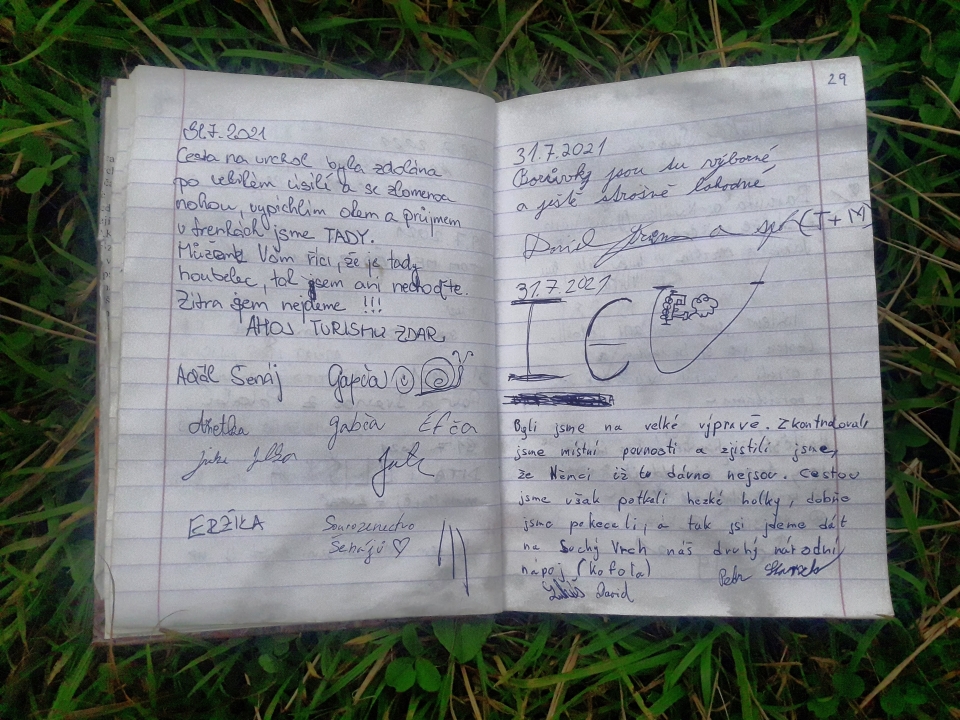 31.7.2021
Cesta na vrchol byla zdolána
po velikém úsilí a se zlomenou
nohou, vypíchlím okem a průjmem
v trenkách jsme TADY.
Můžeme Vám říci, že je tady
houbelec, tak jsem ani nechoďte.
Zítra sem nejdeme !!!
AHOJ TURISMU ZDAR
Adél Šenáj
Gapča
Anetka
gabča
Efča
ERŽIKA
Sourozenectvo
Šenájů
29
31.7.2021
Borůvky jsou tu výborné
a ještě strašně lahodné
David a spol (T+M)
31.7.2021
Byli jsme na velké výpravě. Zkontrolovali
jsme místní pevnosti a zjistili jsme,
že Němci již tu dávno nejsou. Cestou
jsme však potkali hezké holky, dobře
jsme pokecali, a tak si jdeme dát
na Suchý Vrch náš druhý národní
nápoj (kofola)
Petr
Lukáš David